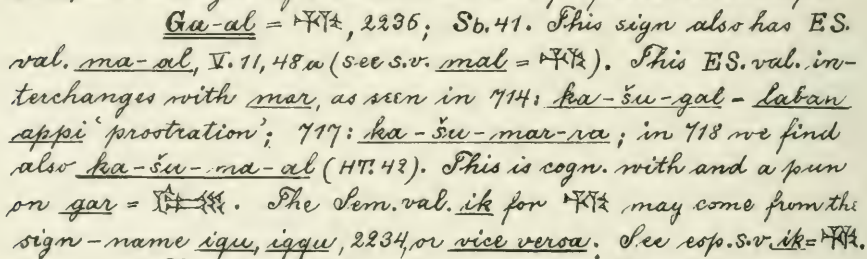 Ga-al = 𒅅, 2236; Sb. 41. This sign also has ES.
val. ma-al, V. 11, 48a (see s.v. mal = 𒅅). This ES. val. in-
terchanges with mar, as seen in 714: ka-šu-gal = laban
appi ‘prostration’; 717: ka-šu-mar-ra; in 718 we find
also ka-šu-ma-al (HT. 42). This is cogn. with and a pun
on gar = . The Sem. val. ik for 𒅅 may come from the
sign-name iqu, iqqu, 2234, or vice versa. See esp. s.v. ik = 𒅅.